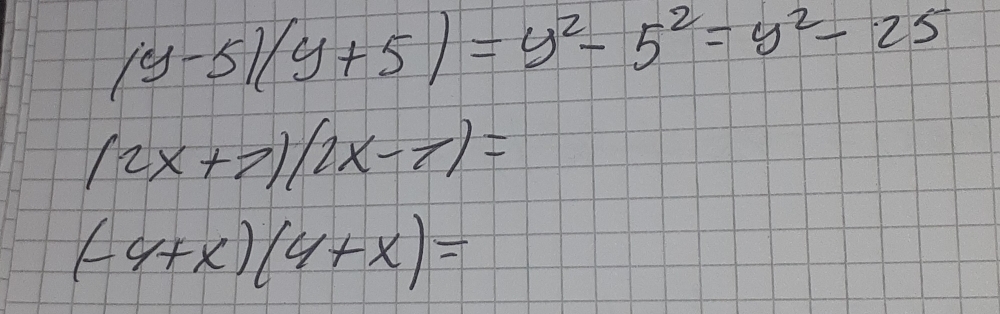 (y-5)(y+5)=y²-5²=y²-25
(2x+7)(2x-7)=
(-y+x)(y+x)=